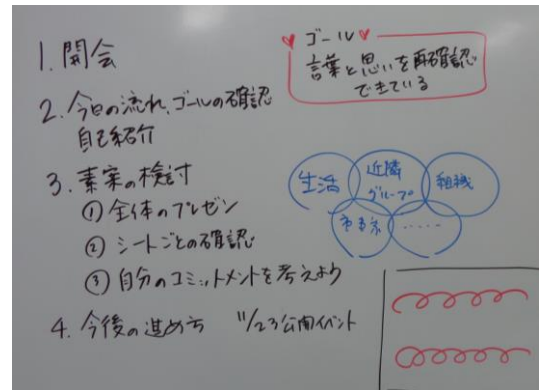 1. 開会
2. 今日の流れ、ゴールの確認
自己紹介
3. 素案の検討
① 全体のプレゼン
② シートごとの確認
③ 自分のコミットメントを考えよう
4. 今後の進め方 11/23公開イベント
ゴール
言葉と思いを再確認
できている
生活
近隣
グループ
組織
......